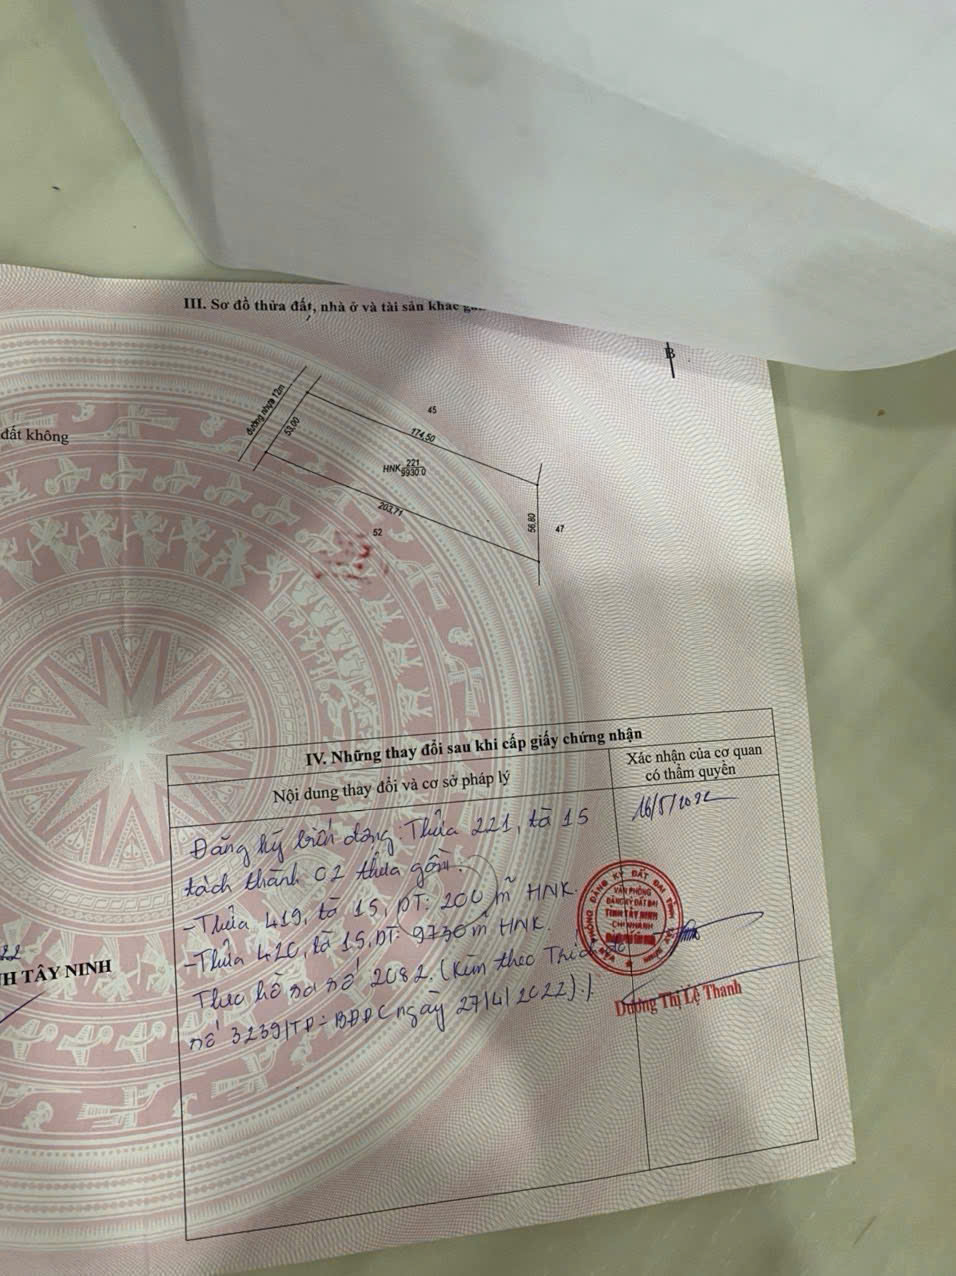 III. Sơ đồ thửa đất, nhà ở và tài sản khác
B
đường nhựa 12m
53,00
45
174,50
đất không
HNK 221
9930.0
203,71
56,80
47
52
IV. Những thay đổi sau khi cấp giấy chứng nhận
Nội dung thay đổi và cơ sở pháp lý
Xác nhận của cơ quan
có thẩm quyền
Đăng ký biến động: Thửa 221, tờ 15
16/5/2022
tách thành 02 thửa gồm:
- Thửa 419, tờ 15, DT: 200 m² HNK.
- Thửa 420, tờ 15, DT: 9730 m² HNK.
Theo hồ sơ số 2082. (Kèm theo Trích đo
số 3239/TĐ-BĐĐC ngày 27/4/2022)./
VĂN PHÒNG
ĐĂNG KÝ ĐẤT ĐAI
TỈNH TÂY NINH
CHI NHÁNH
Dương Thị Lệ Thanh
H TÂY NINH